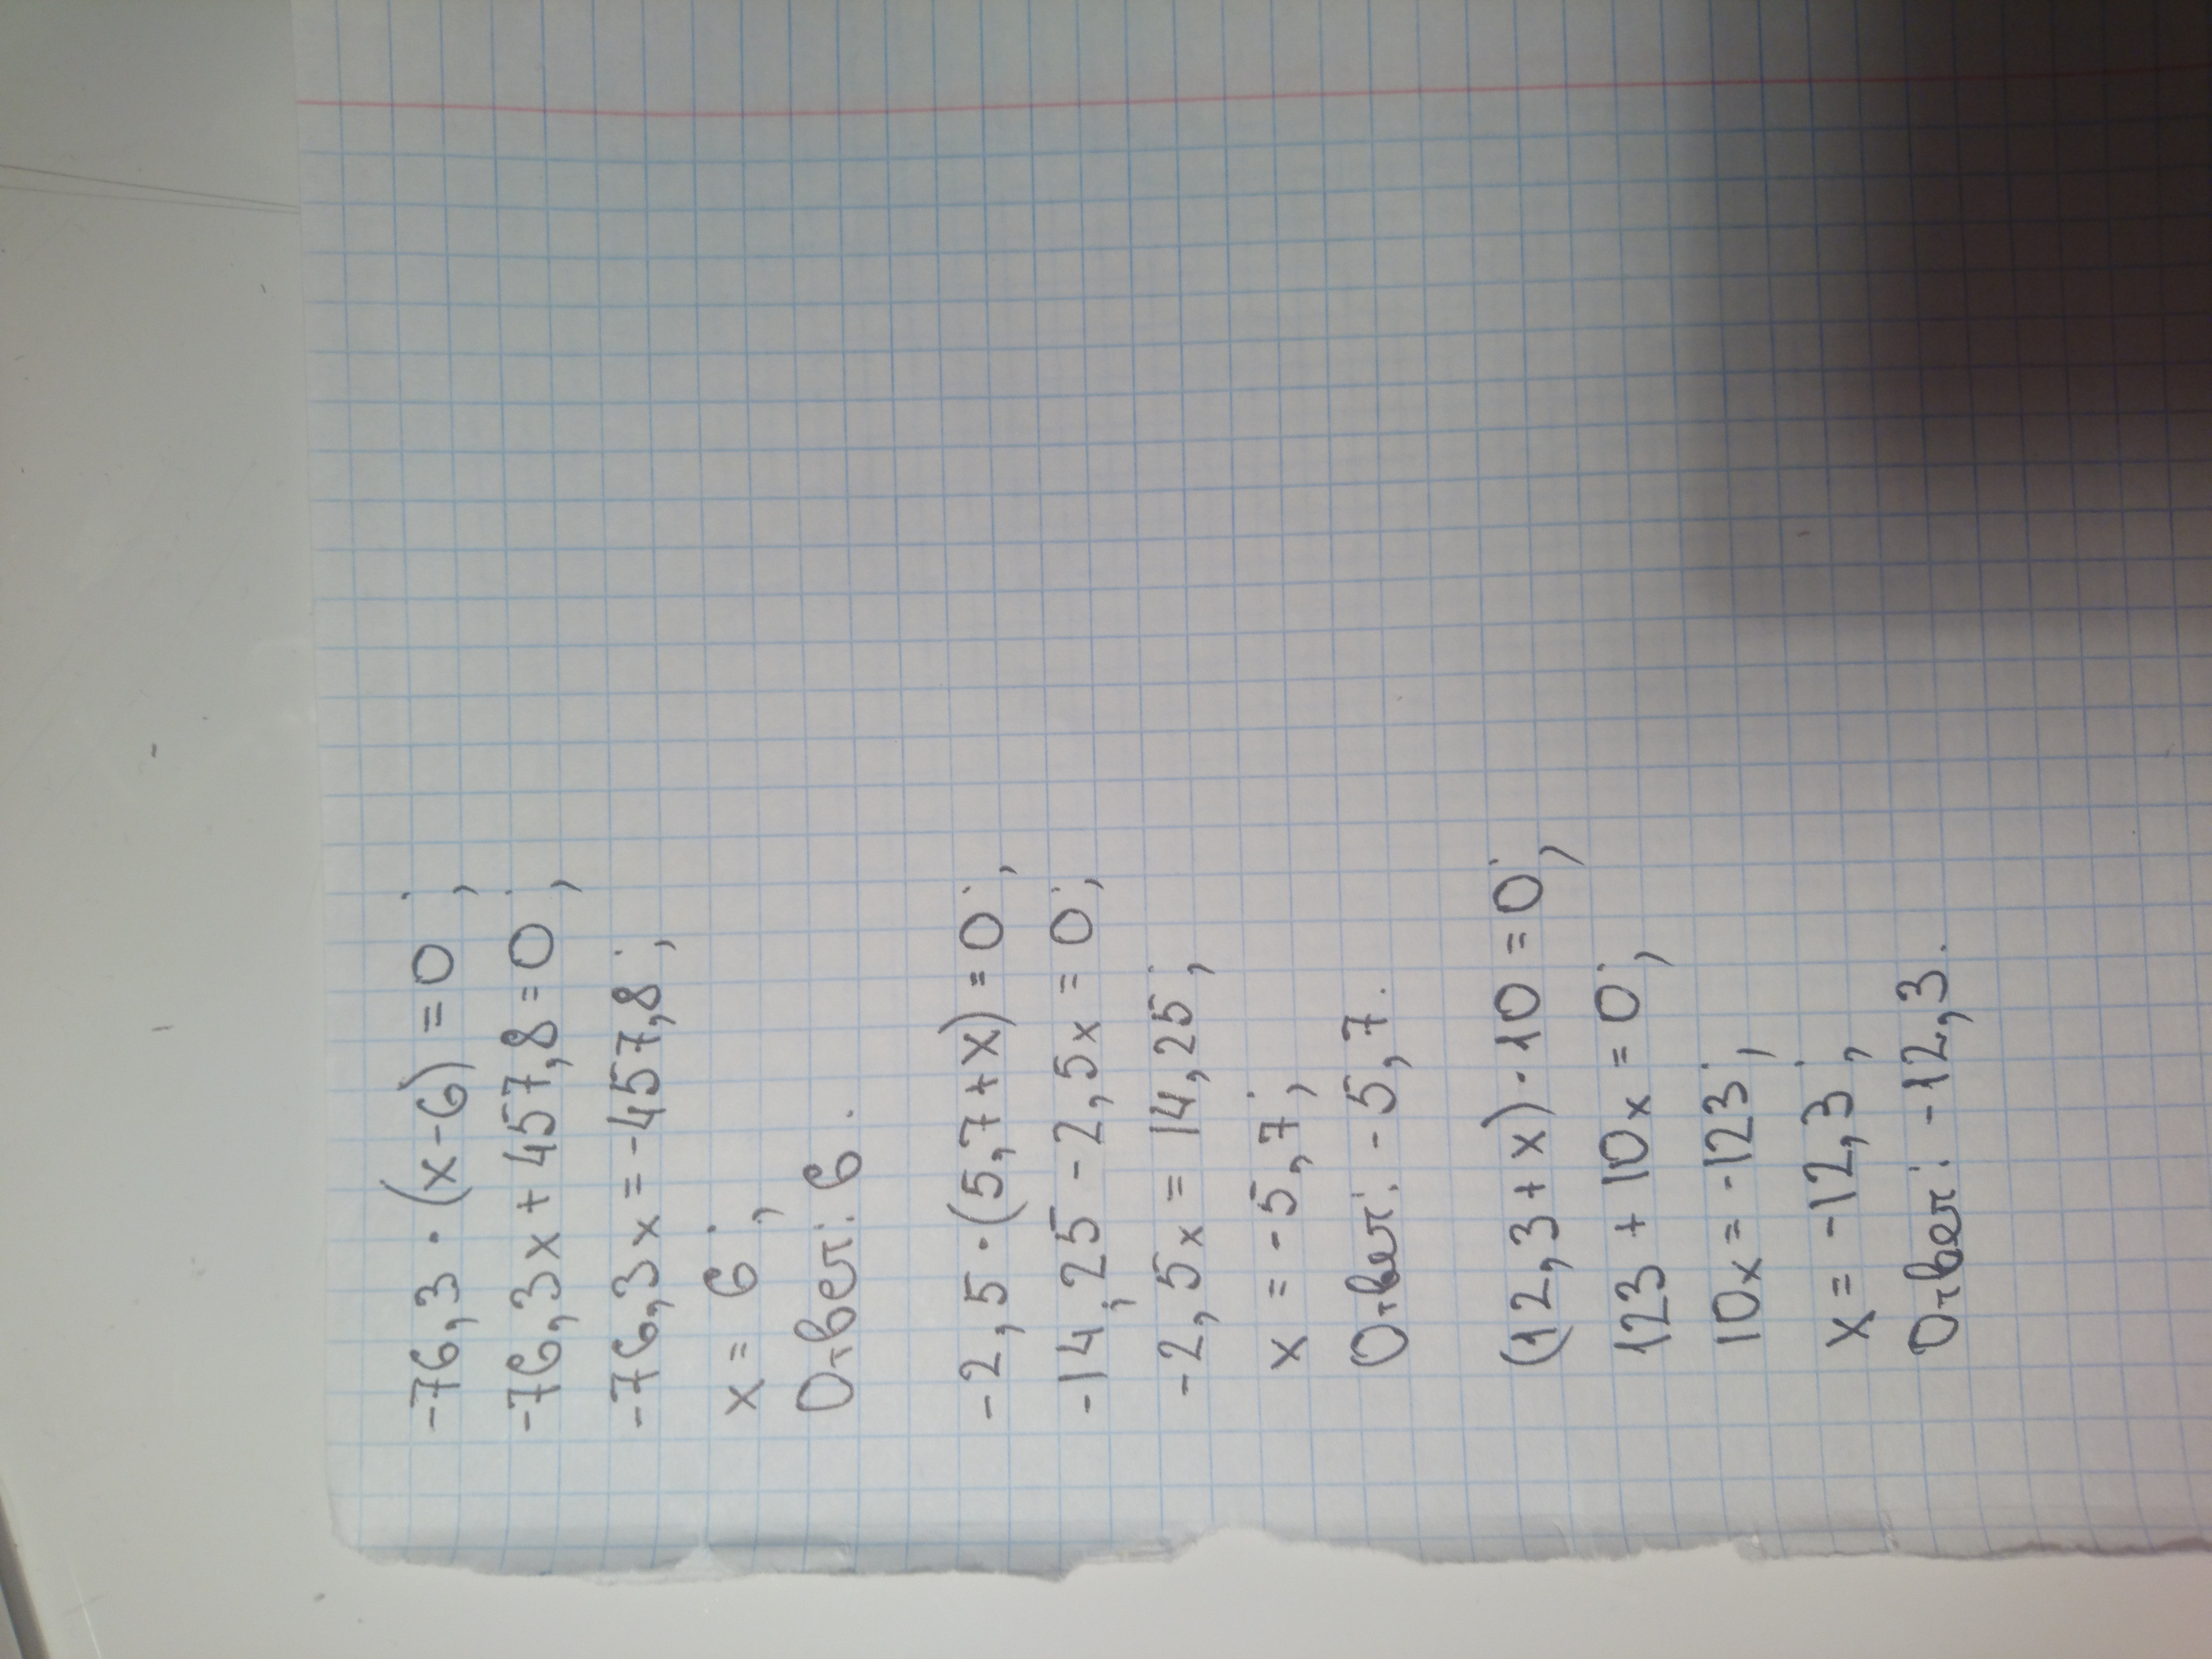 -76,3·(x-6)=0;
-76,3x+457,8=0;
-76,3x=-457,8;
x=6;
Ответ: 6.
-2,5·(5,7+x)=0;
-14,25-2,5x=0;
-2,5x=14,25;
x=-5,7;
Ответ: -5,7.
(12,3+x)·10=0;
123+10x=0;
10x=-123;
x=-12,3;
Ответ: -12,3.